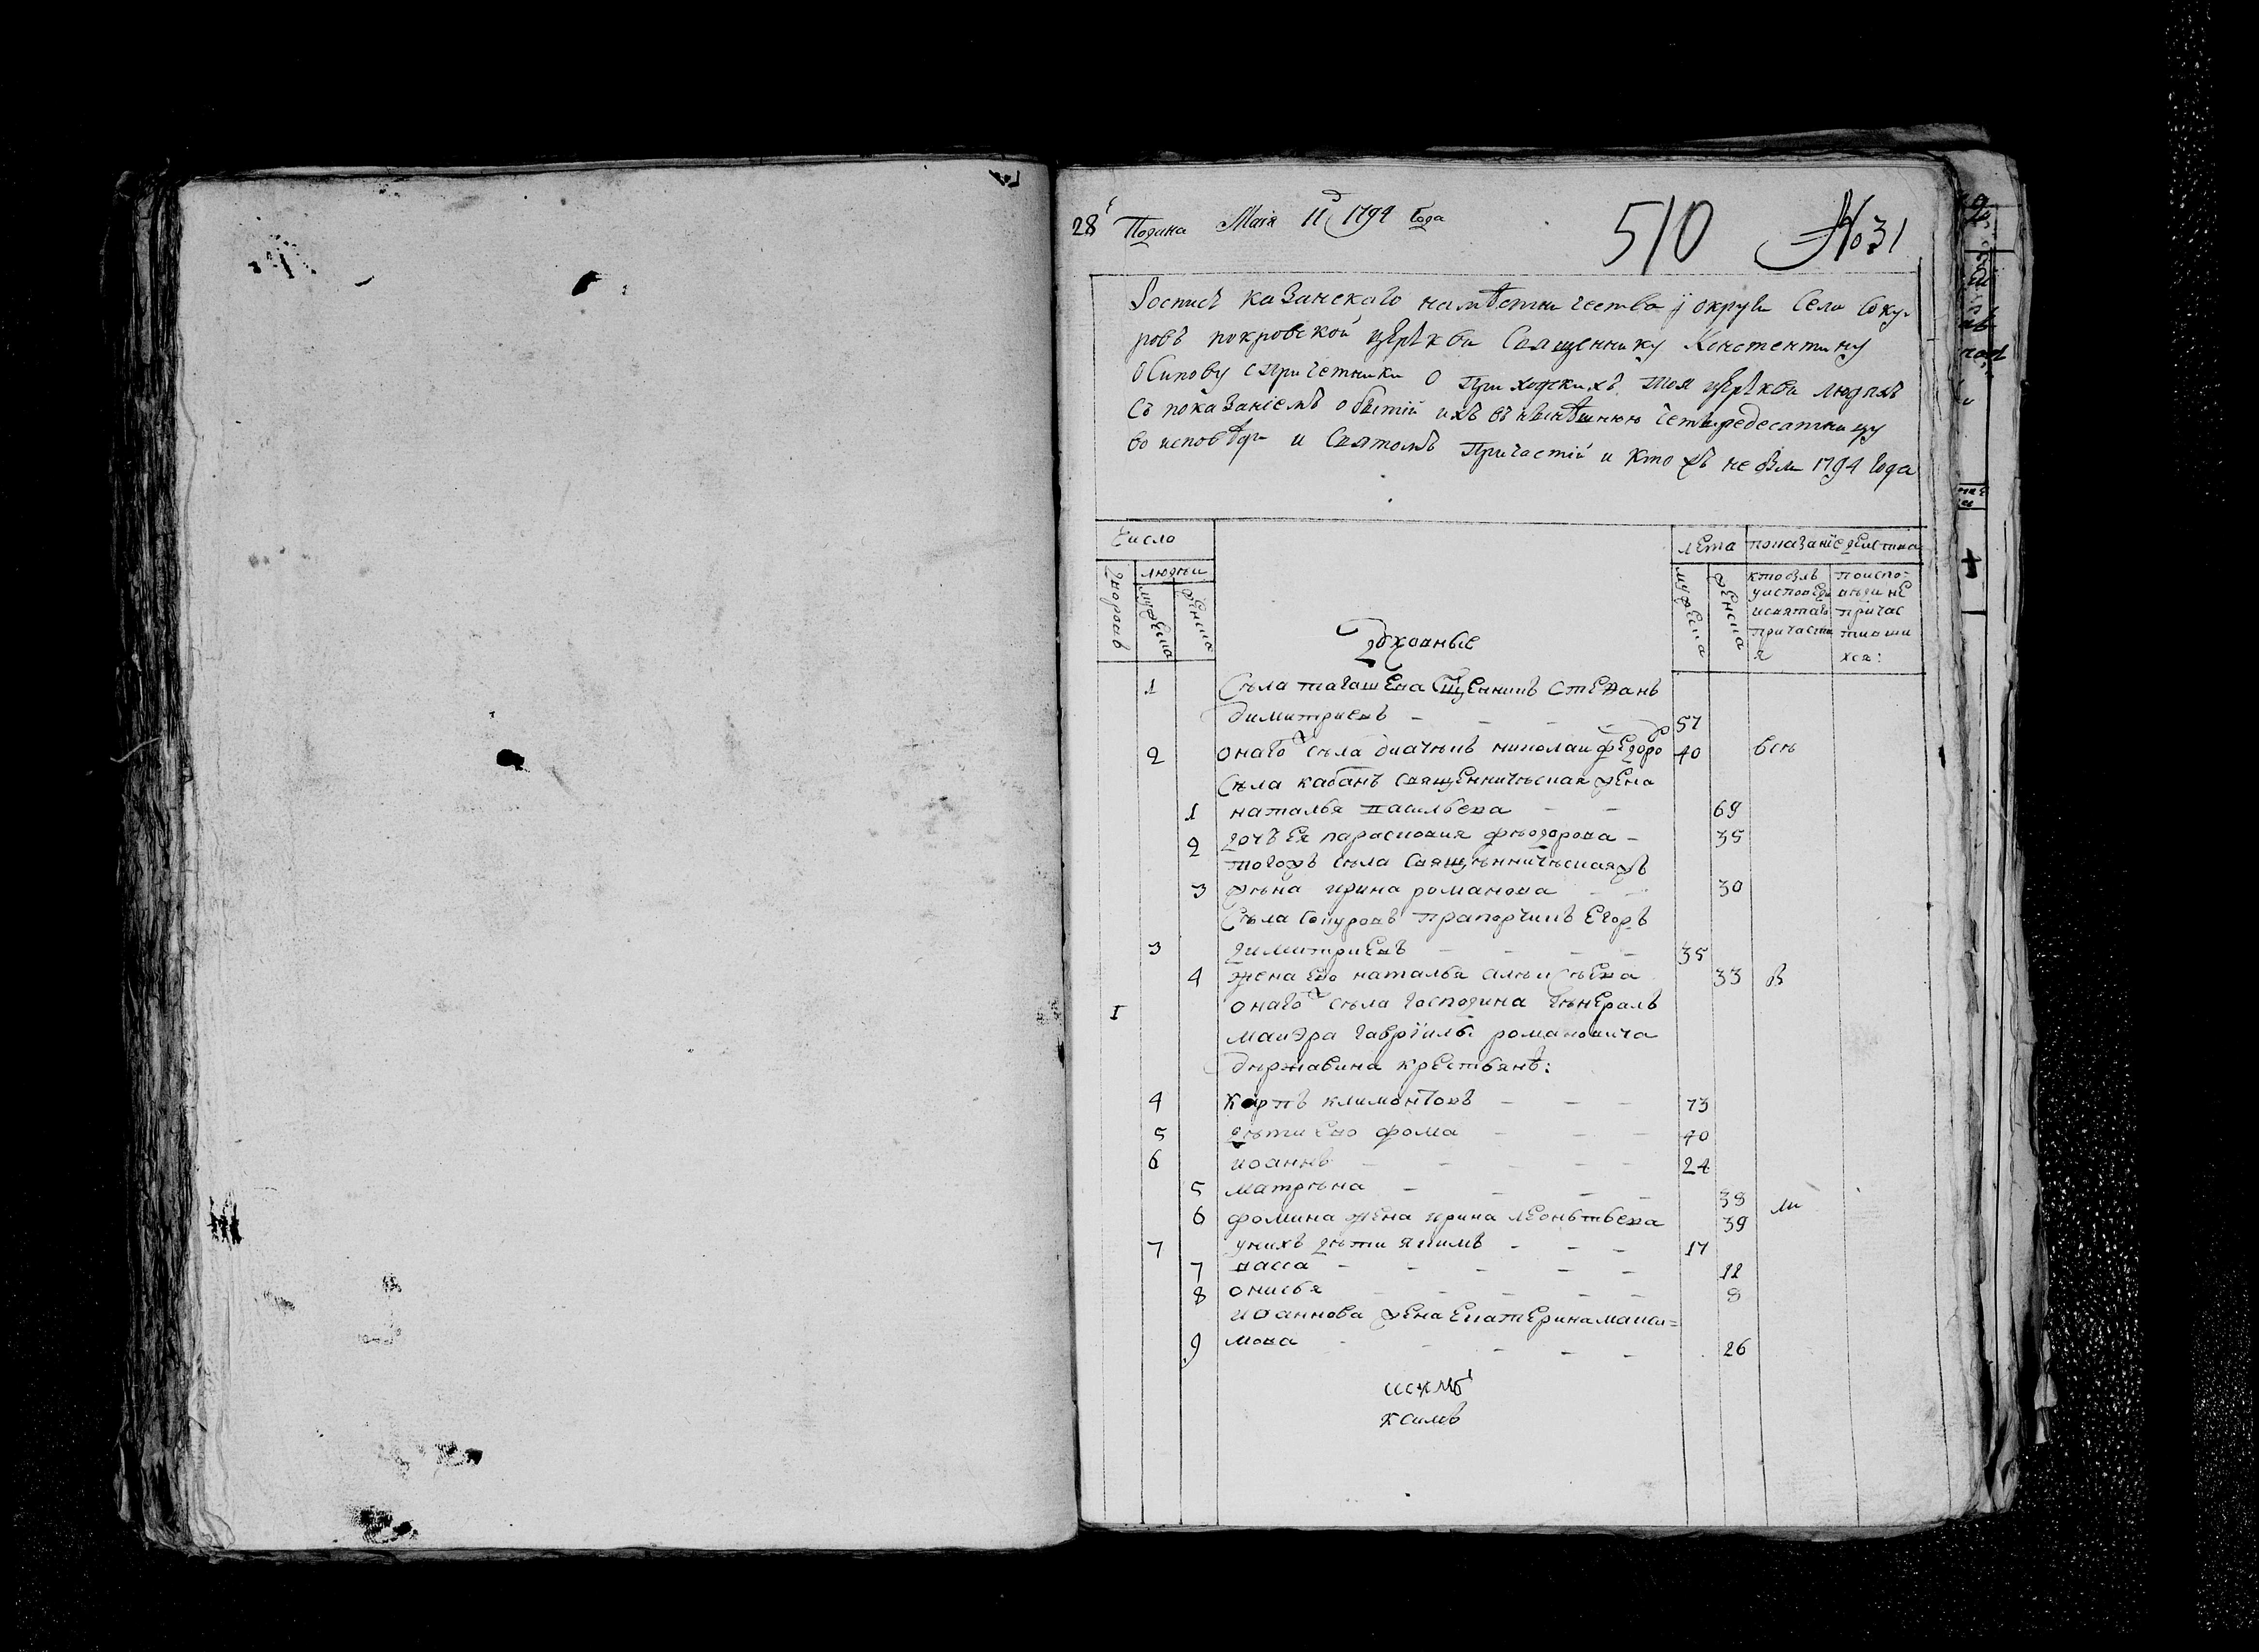 28 Подана Маія 11 д 1794 Года
510 №31
Роспись казанскаго намѣстничества и округи села соку-
ровъ покровской церкви Священнику Констентину
Осипову спричетники о приходскихъ тоя церкви людяхъ
съ показаніемъ о бытіи ихъ въ нынѣшнюю четыредесатницу
во исповѣди и Святомъ Причастіи и кто жъ не был 1794 Года
Число
лета показание действа
людѣи
дворовъ
мужеска
женска
мужеска
женска
кто былъ
у исповеди
и святаго
причасти
я
по испо-
вѣди не
причас
тивши
хся:
Духовные
1 Сѣла тагашева Сщенникъ Стефанъ
димитриевъ - - - 57
2 онаго ж сѣла диачѣкъ николаи федоро в 40 всѣ
Сѣла кабанъ Священничѣская жена
1 наталья васильева - - 69
2 дочь ея парасковия фѣодорова - 35
тогожъ сѣла Священничѣскаяжъ
3 жѣна ирина романова - - 30
Сѣла Сокуровъ прапорчикъ Егоръ
3 димитриевъ - - - - 35
4 жена ево наталья алѣксѣева 33 б
I онаго ж сѣла господина генералъ
маиэра гавріилы романовича
дѣржавина крестьянѣ:
4 карпъ климонтовъ - - - 73
5 дѣти ево фома - - - 40
6 иоаннъ - - - - - 24
5 матрѣна - - - - 38
6 фомина жена ирина леонътьева 39 ли
7 унихъ дѣти якимъ - - - 17
7 васса - - - - - 11
8 онисья - - - - - 8
иоаннова жена екатерина макси=
9 мова - - - - - 26